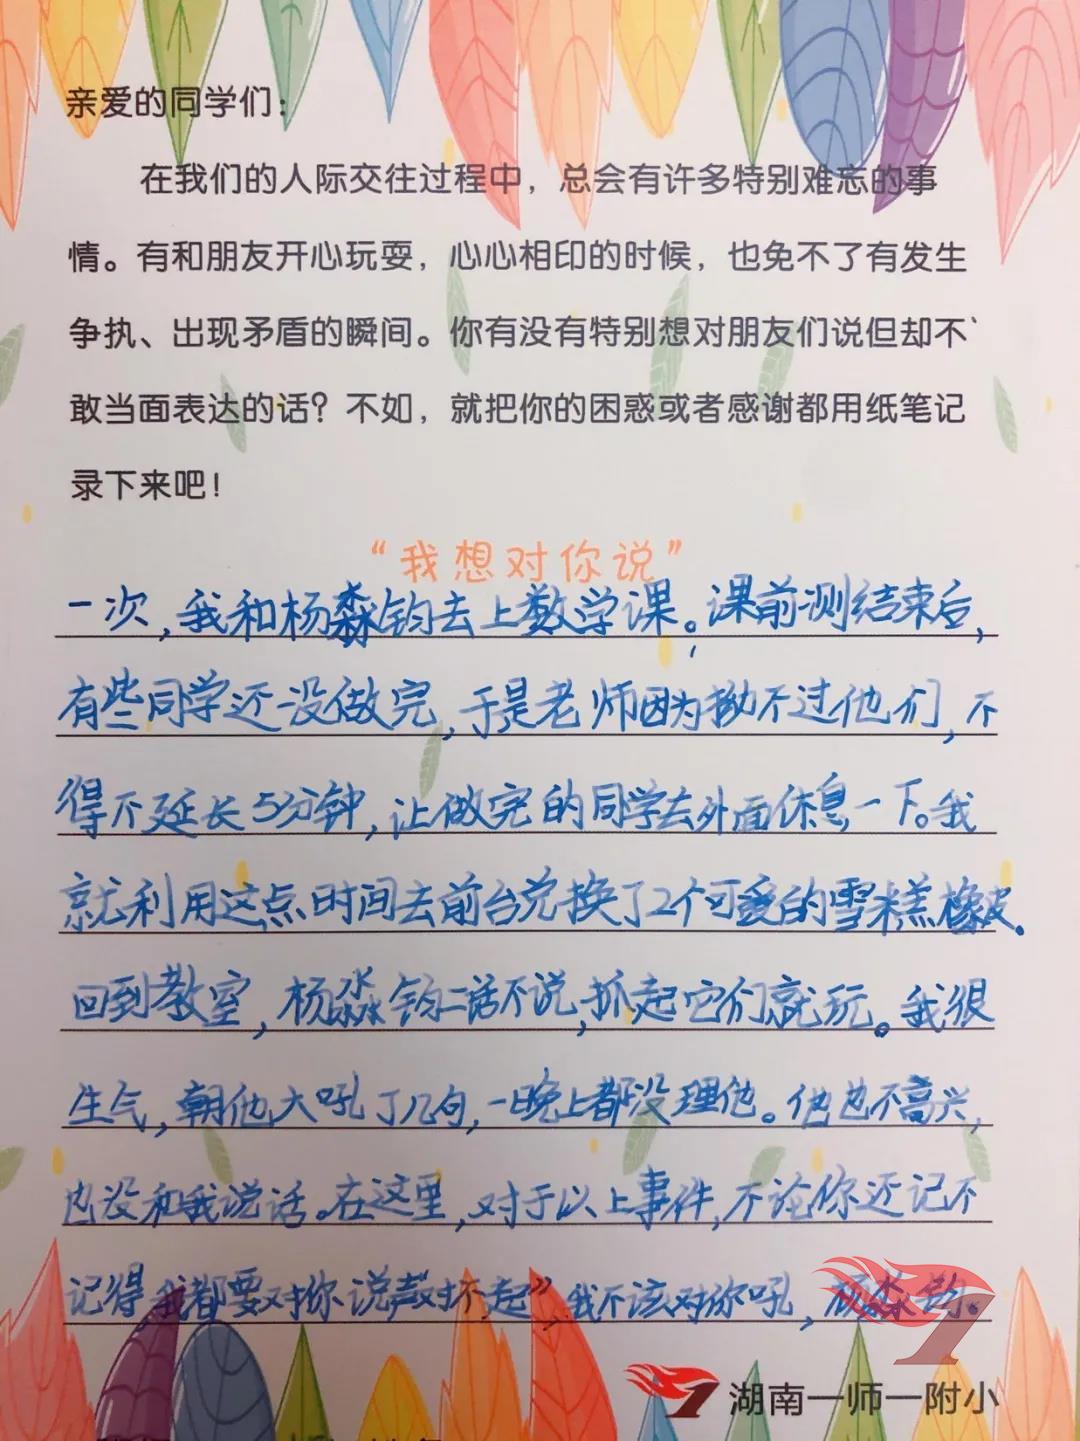 亲爱的同学们：
在我们的人际交往过程中，总会有许多特别难忘的事
情。有和朋友开心玩耍，心心相印的时候，也免不了有发生
争执、出现矛盾的瞬间。你有没有特别想对朋友们说但却不
敢当面表达的话？不如，就把你的困惑或者感谢都用纸笔记
录下来吧！
“我想对你说”
一次，我和杨淼钧去上数学课。课前测结束后，
有些同学还没做完，于是老师因为拗不过他们，不
得不延长5分钟，让做完的同学去外面休息一下。我
就利用这点时间去前台兑换了2个可爱的雪糕橡皮。
回到教室，杨淼钧二话不说，抓起它们就玩。我很
生气，朝他大吼了几句，一晚上都没理他。他也不高兴，
也没和我说话。在这里，对于以上事件，不论你还记不
记得，我都要对你说声“对不起”，我不该对你吼，杨淼钧。
湖南一师一附小